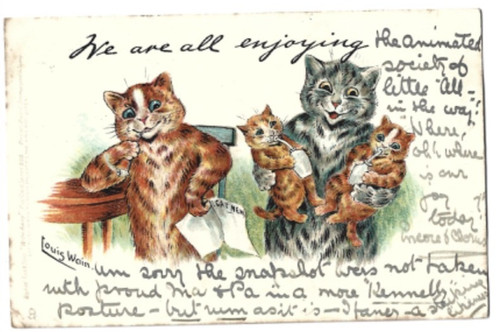 We are all enjoying
the animated
society of
little "all-
in the way!
"Where,
oh! where
is our
today?
Encore & Chorus
Louis Wain.
um sorry the snapshot was not taken
with proud Ma & Pa in a more "Kennelly"
posture - but um as it is - I fancy - a